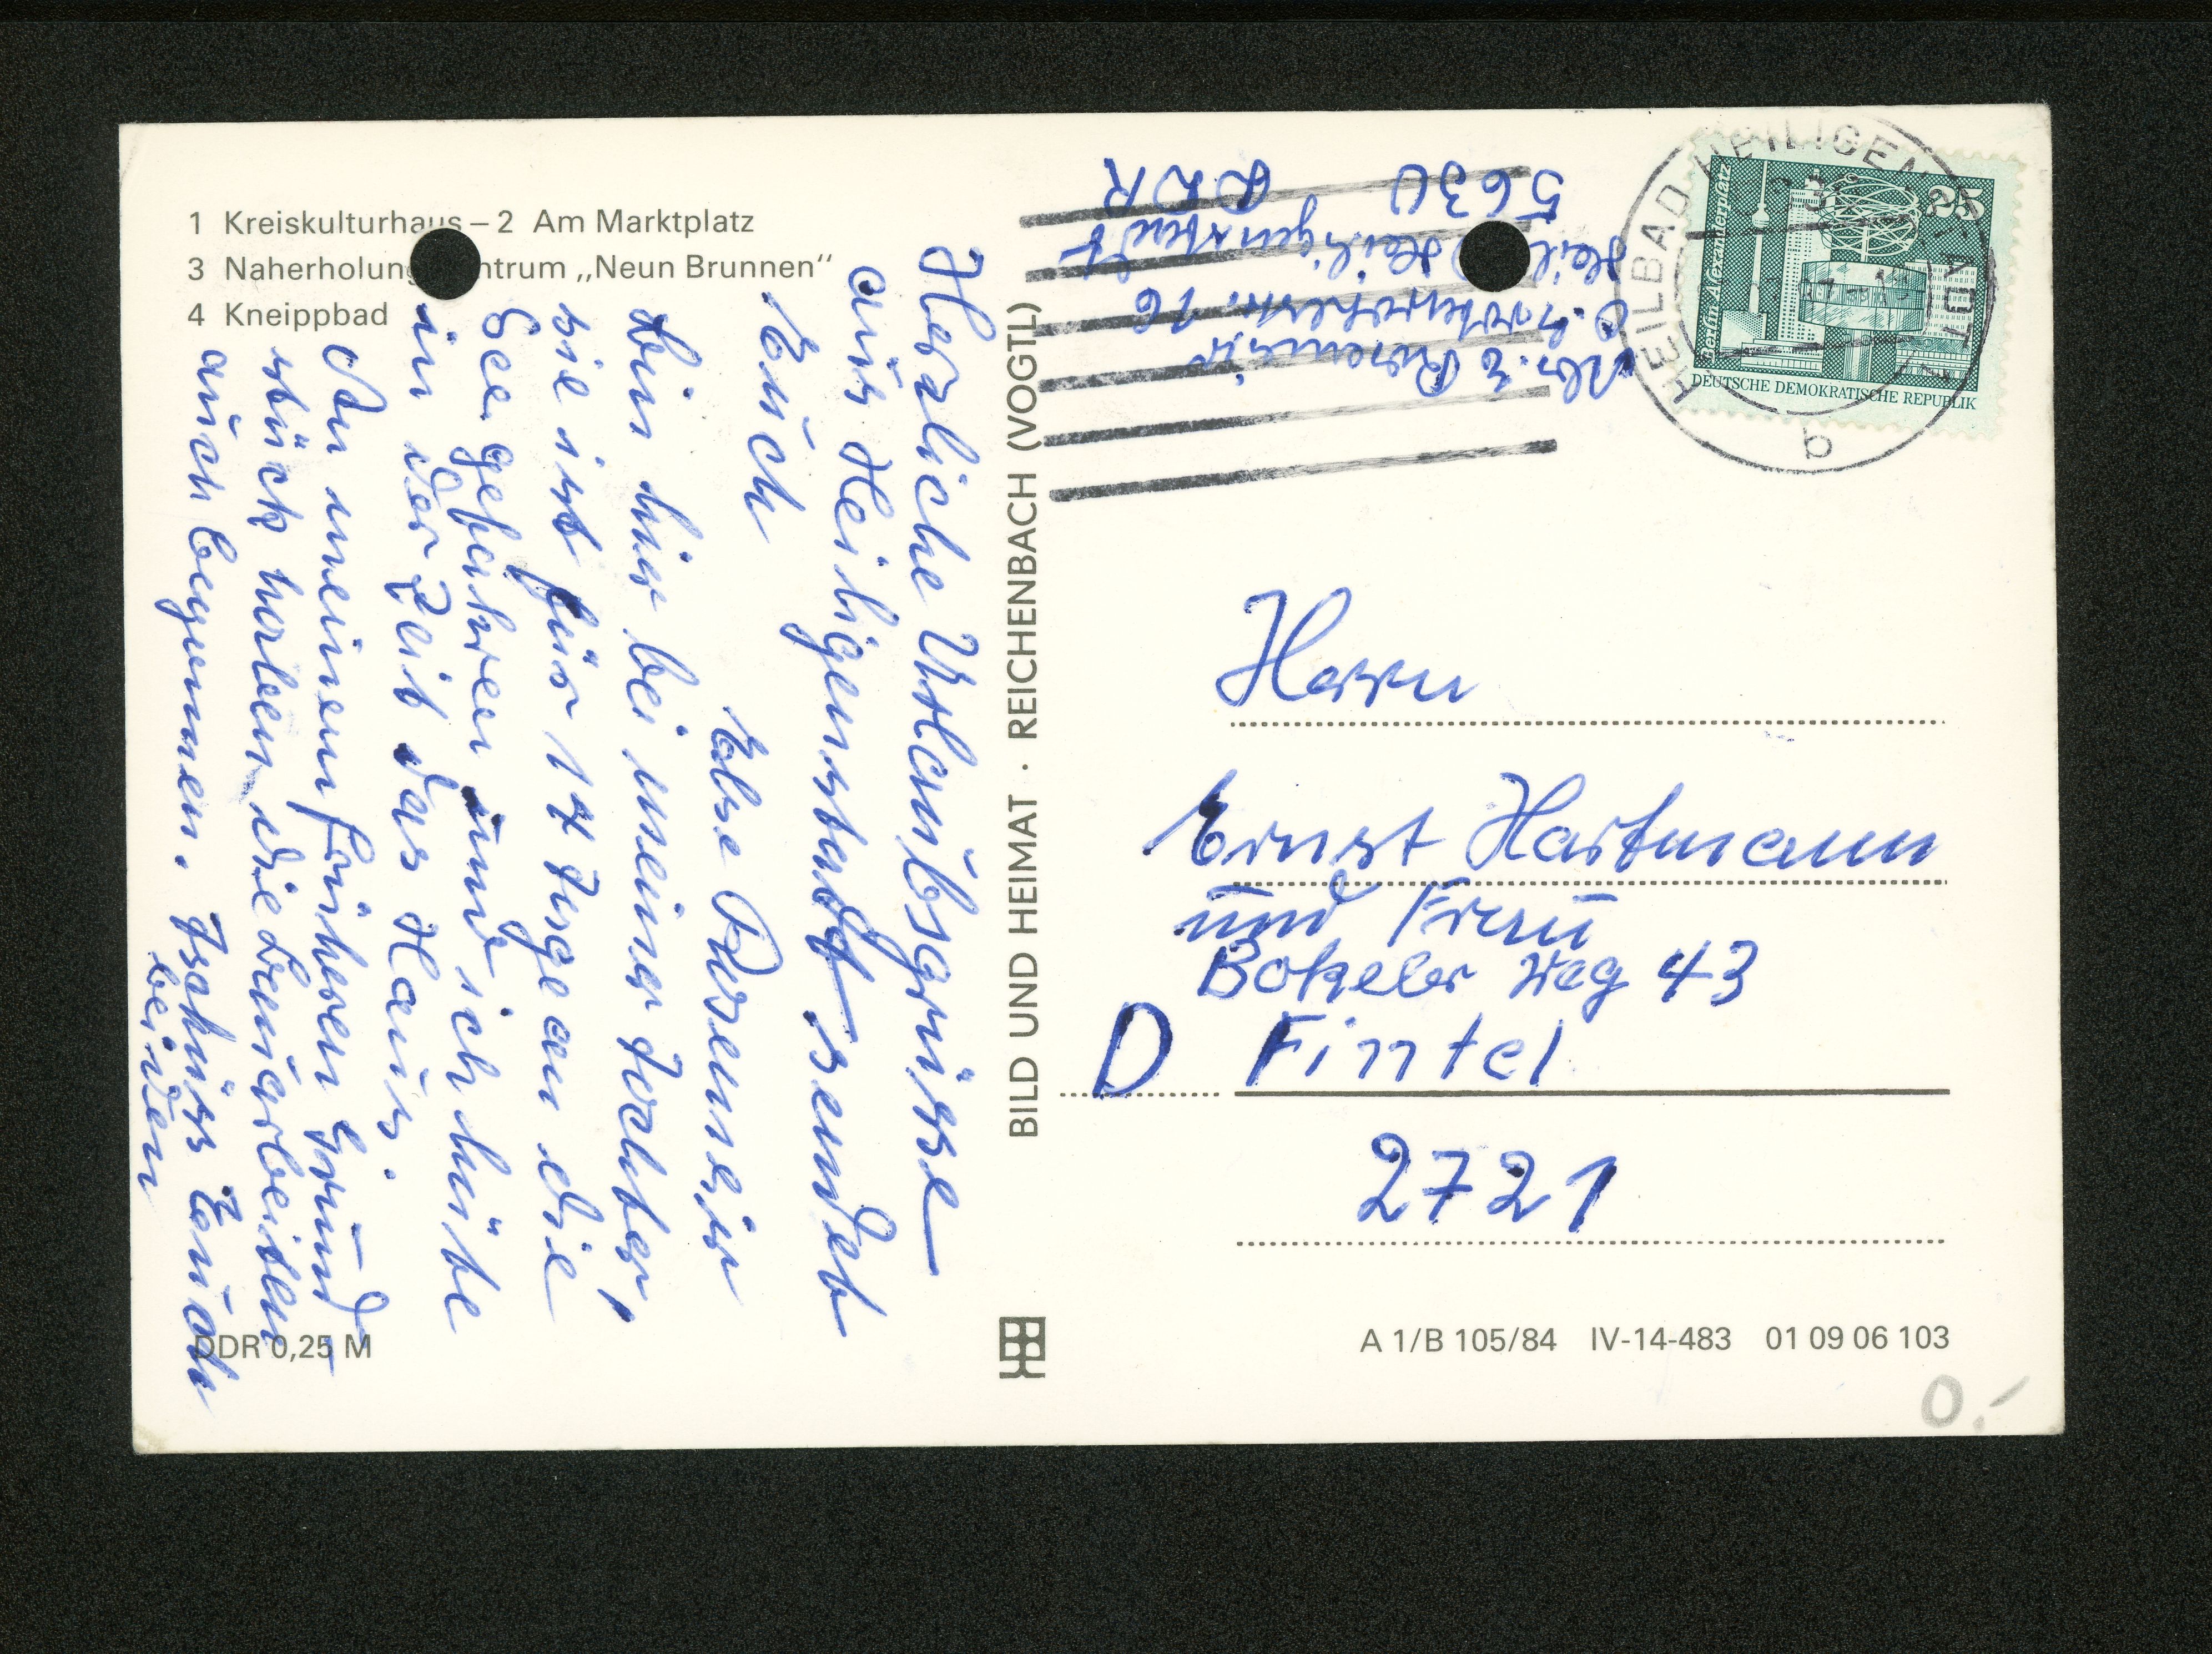 1 Kreiskulturhaus – 2 Am Marktplatz
3 Naherholungszentrum „Neun Brunnen“
4 Kneippbad
Herzliche Urlaubsgrüsse
aus Heiligenstadt sendet
Euch
Else
bin hier bei meiner Tochter,
sie ist für 14 Tage an die
See gefahren und ich hüte
in der Zeit das Haus.
An meinem früheren Grund-
stück haben die Bauarbeiten
auch begonnen. Tschüss Euch
beiden
DDR 0,25 M
BILD UND HEIMAT · REICHENBACH (VOGTL)
Abs. E
16
Heiligenstadt
5630 DDR
HEILBAD HEILIGENSTADT
b
25
Berlin Alexanderplatz
DEUTSCHE DEMOKRATISCHE REPUBLIK
Herrn
Ernst Hartmann
und Frau
Bokeler Weg 43
D Fintel
2721
A 1/B 105/84 IV-14-483 01 09 06 103
0.-